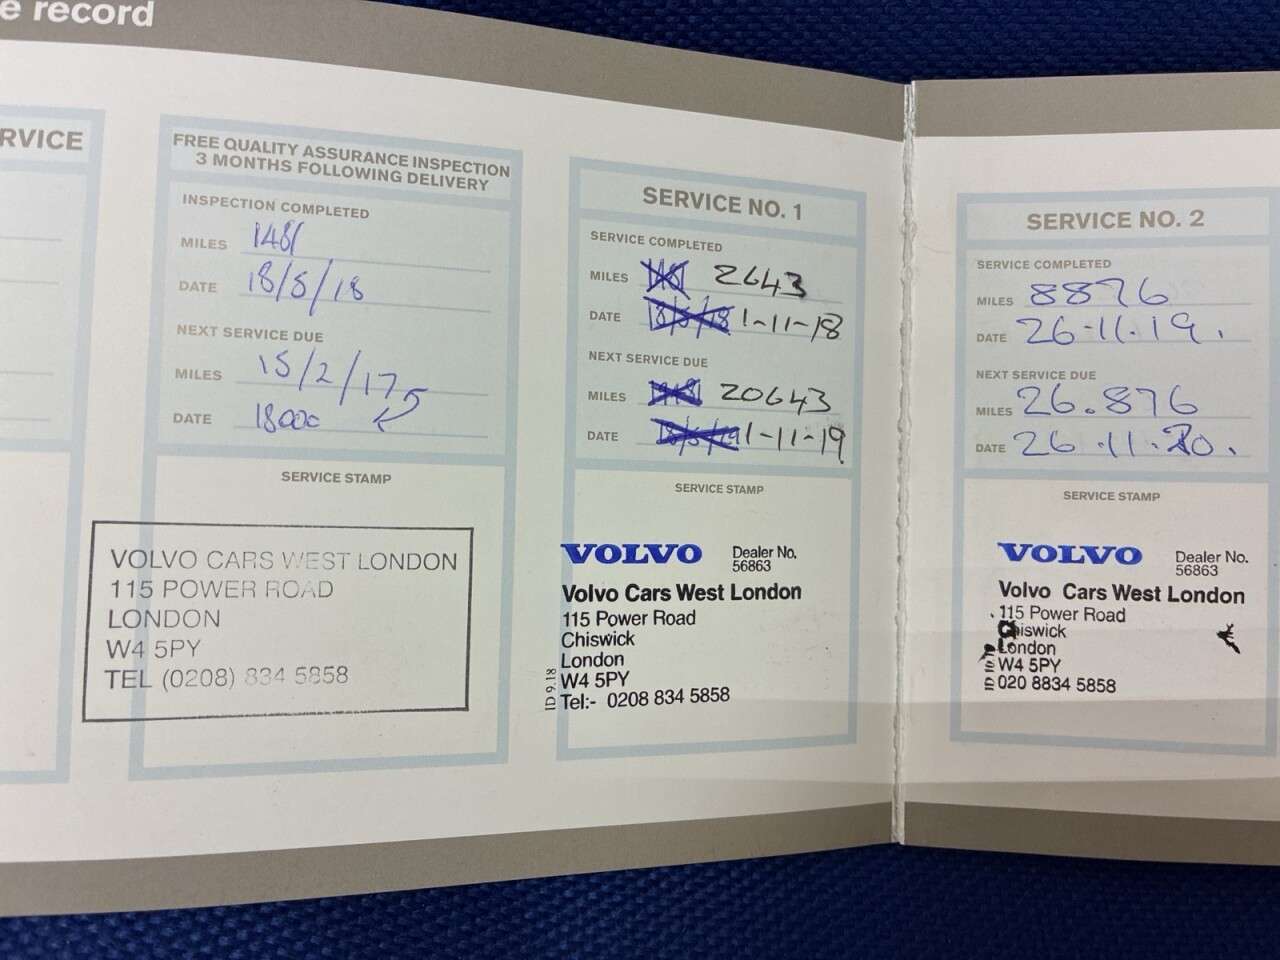 e record
RVICE
FREE QUALITY ASSURANCE INSPECTION
3 MONTHS FOLLOWING DELIVERY
INSPECTION COMPLETED
MILES 1481
DATE 18/5/18
NEXT SERVICE DUE
MILES 15/2/17
DATE 18000
SERVICE STAMP
VOLVO CARS WEST LONDON
115 POWER ROAD
LONDON
W4 5PY
TEL (0208) 834 5858
SERVICE NO. 1
SERVICE COMPLETED
MILES 2643
DATE 18/5/18 1-11-18
NEXT SERVICE DUE
MILES 20643
DATE 18/5/19 1-11-19
SERVICE STAMP
VOLVO Dealer No.
56863
Volvo Cars West London
115 Power Road
Chiswick
London
W4 5PY
Tel:- 0208 834 5858
ID 9.18
SERVICE NO. 2
SERVICE COMPLETED
MILES 8876
DATE 26.11.19.
NEXT SERVICE DUE
MILES 26.876
DATE 26.11.20.
SERVICE STAMP
VOLVO Dealer No.
56863
Volvo Cars West London
115 Power Road
Chiswick
London
W4 5PY
020 8834 5858